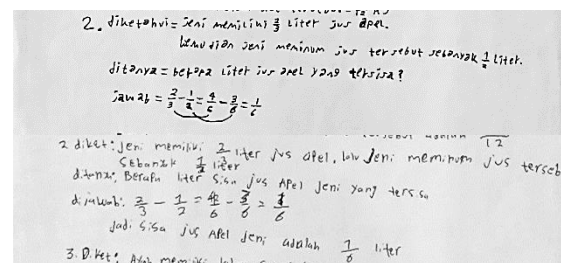 2. diketahui = Jeni memiliki 2/3 Liter jus apel.
kemudian Jeni meminum jus tersebut sebanyak 1/2 Liter.
ditanya = berapa Liter jus apel yang tersisa?
jawab = 2/3 - 1/2 = 4/6 - 3/6 = 1/6
12
2 diket: Jeni memiliki 2/3 liter jus apel, lalu Jeni meminum jus terseb
Sebanyak 1/2 liter
ditanya: Berapa liter Sisa jus Apel Jeni yang tersisa
dijawab: 2/3 - 1/2 = 4/6 - 3/6 = 1/6
Jadi Sisa jus Apel Jeni adalah 1/6 liter
3. Diket: